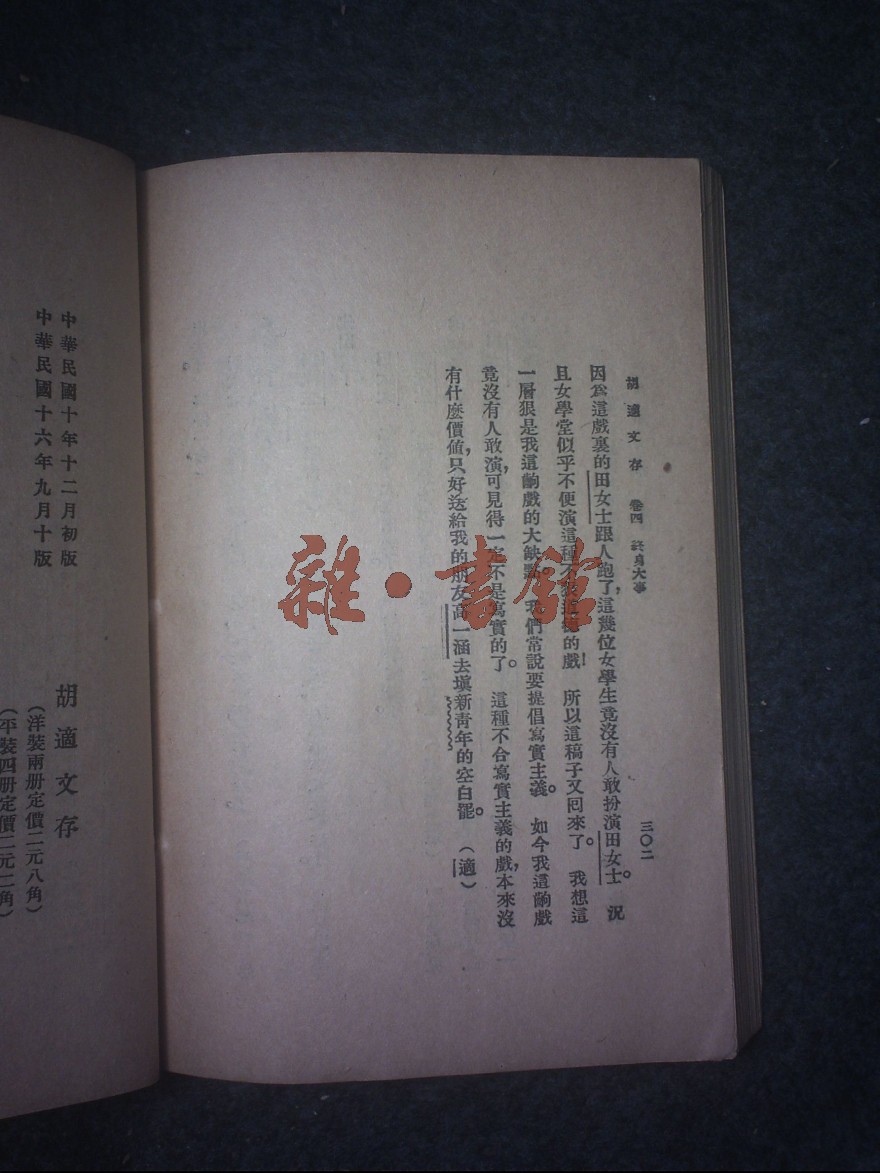 胡適文存 卷四 終身大事
三〇二
因爲這戲裏的田女士跟人跑了，這幾位女學生竟沒有人敢扮演田女士。況
且女學堂似乎不便演這種不狠道德的戲！所以這稿子又囘來了。我想這
一層狠是我這齣戲的大缺點。我們常說要提倡寫實主義。如今我這齣戲
竟沒有人敢演，可見得一定不是寫實的了。這種不合寫實主義的戲，本來沒
有什麽價値，只好送給我的朋友高一涵去塡新靑年的空白罷。（適）
雜·書館
中華民國十年十二月初版
中華民國十六年九月十版
胡適文存
（洋裝兩册定價二元八角）
（平裝四册定價二元二角）